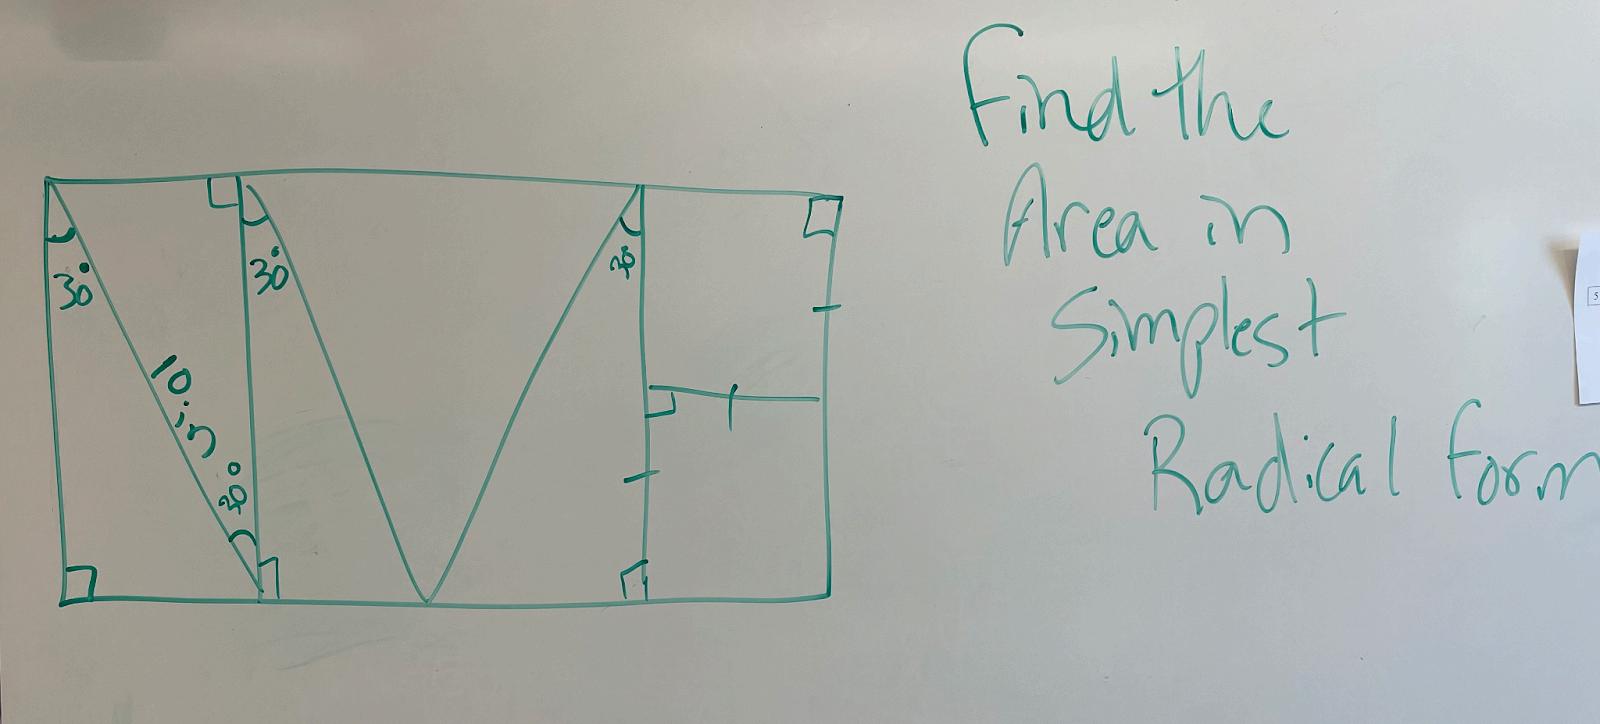 Find the
Area in
Simplest
Radical form
30°
30°
30°
10 in
30°
5